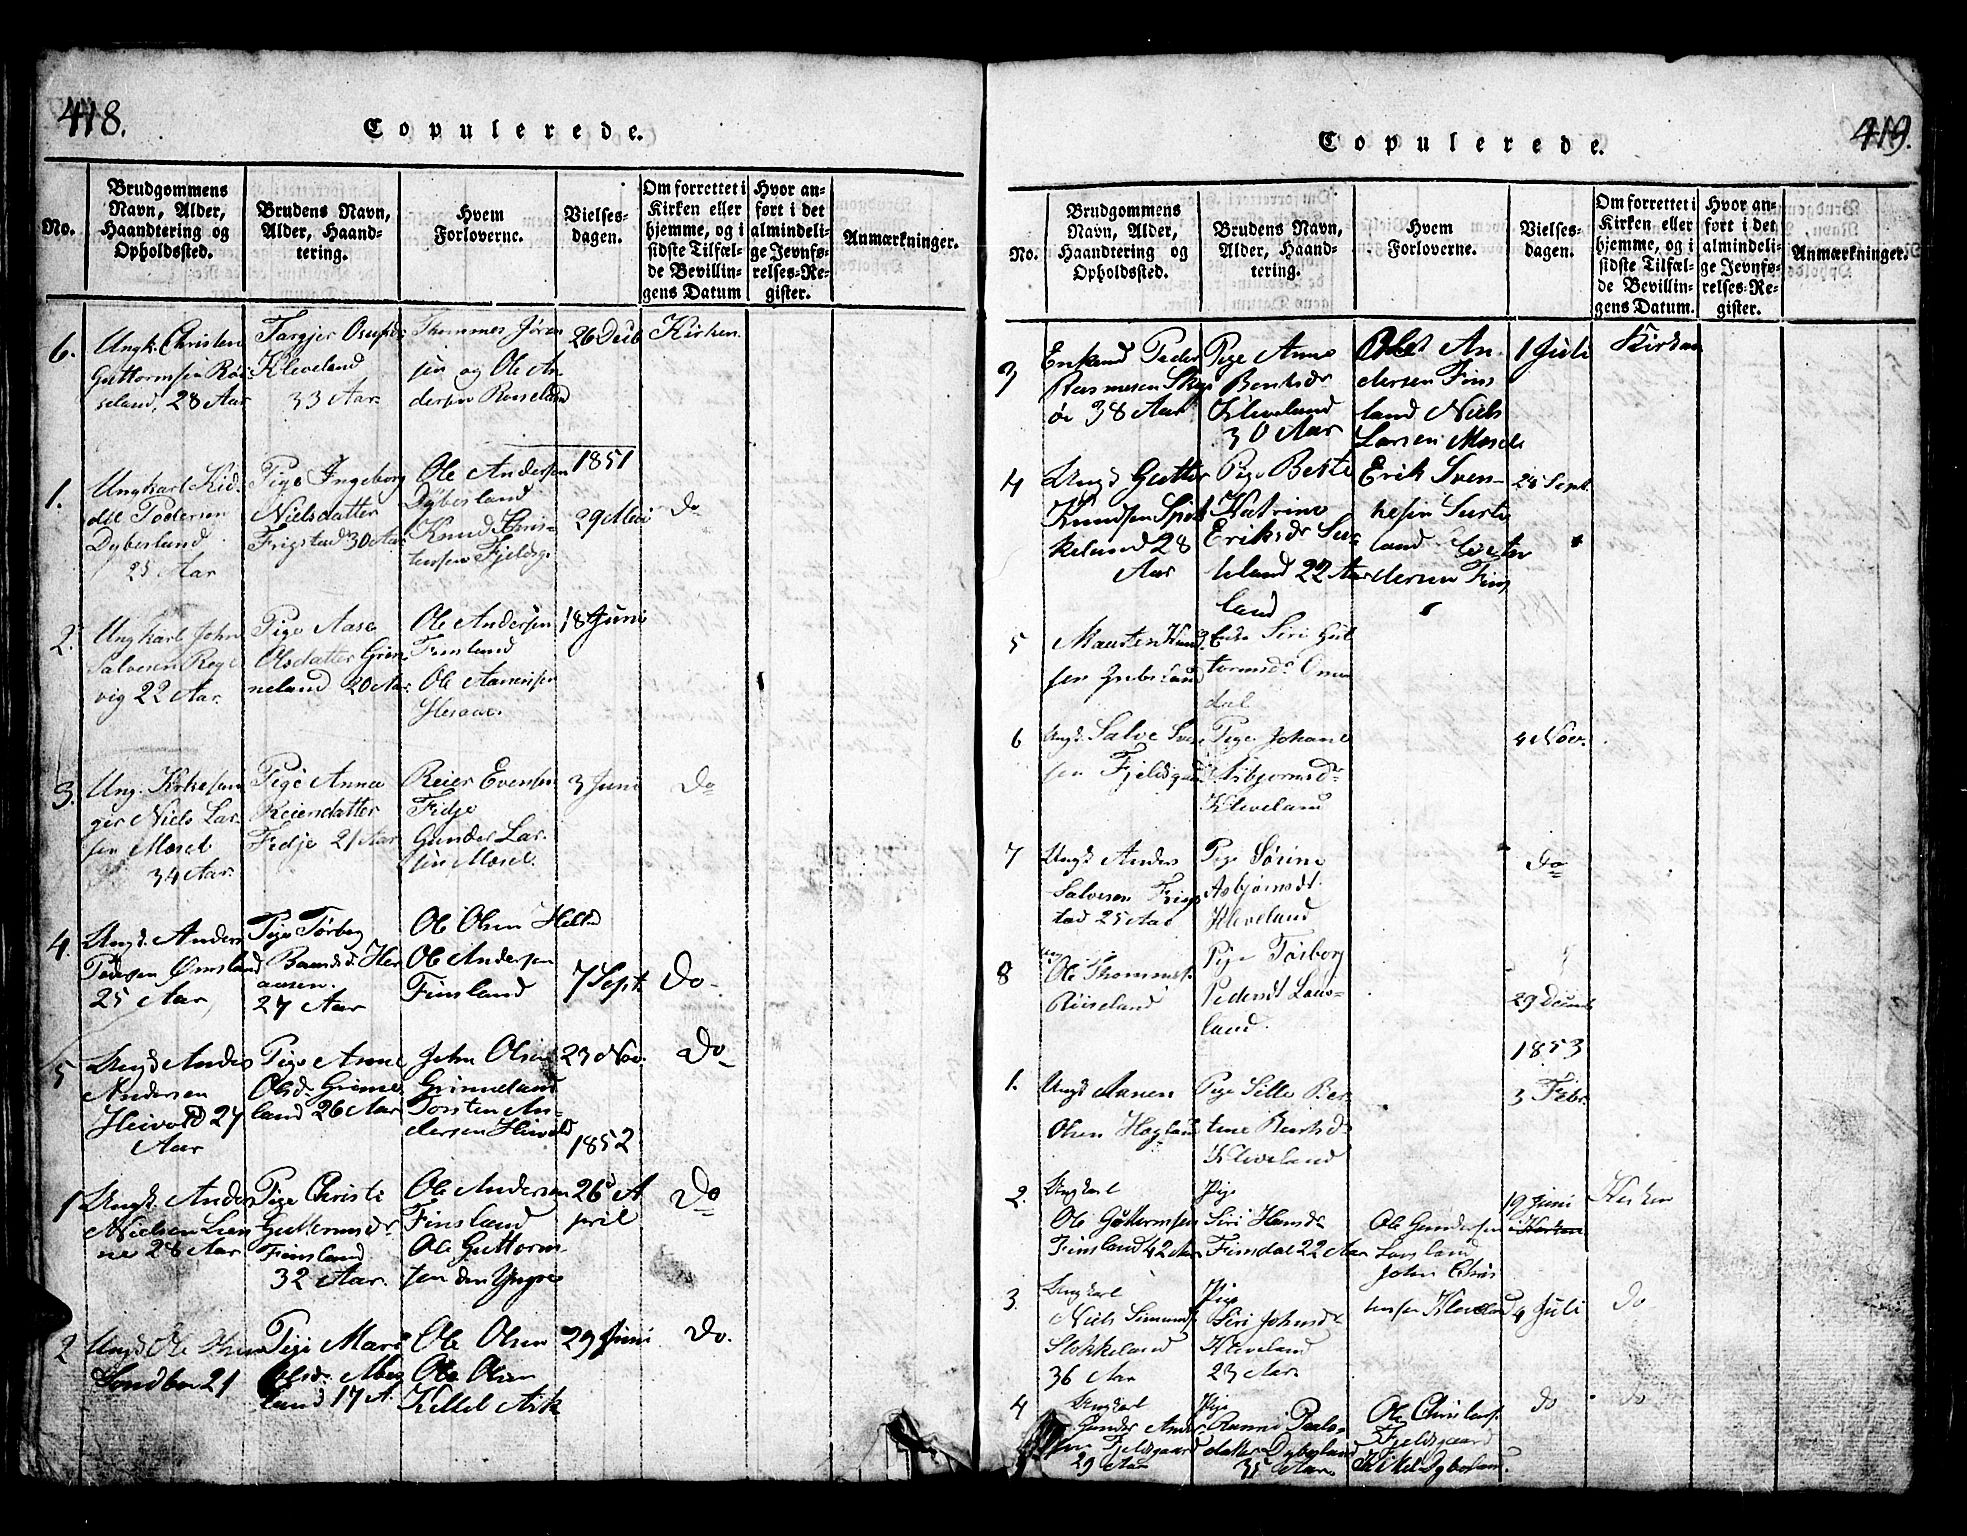 418.
Copulerede.
No.
Brudgommens
Navn, Alder,
Haandtering og
Opholdssted.
Brudens Navn,
Alder, Haand-
tering.
Hvem
Forloverne.
Vielses-
dagen.
Om forrettet i
Kirken eller
hjemme, og i
sidste Tilfæl-
de Bevillin-
gens Datum
Hvor an-
ført i det
almindeli-
ge Jevnfø-
relses-Re-
gister.
Anmærkninger.
6.
Ungk. Christen
Guttormsen Röi
seland, 28 Aar
Targjer
Kleveland
33 Aar
Thommes Jören
sen og Ole An
dersen Röiseland
26 Decb
Kirken.
1851
1.
Ungkarl Kid-
del Pedersen
Dyberland
25 Aar
Pige Ingeborg
Nielsdatter
Frigstad 30 Aar
Ole Andersen
Dyberland
Knud Chris-
tensen Fjeldsg.
29 Mai
Do
2.
Ungkarl John
Salvesen Rege
vig 22 Aar.
Pige Aase
Olsdatter Grim
neland 20 Aar
Ole Andersen
Finsland
Ole Aanensen
Heraae.
18 Juni
3.
Ung. Kirkesan
ger Niels Lar-
sen Mosel
34 Aar.
Pige Anna
Reiersdatter
Fidje 21 Aar
Reier Evensen
Fidje
Gunder Lar-
sen Mosel.
3 Juni
Do
4.
Ungk. Anders
Pedersen Ömsland
25 Aar
Pige Torbor
27 Aar
Ole Olsen
Ole Andersen
Finsland
7 Sept.
Do
5
Ungk Anders
Andersen
Heivold 27
Aar
Pige Anne
Olsd. Grimne
land 26 Aar
John Olsen
Grimneland
Torsten An-
dersen Heivold
23 Nov.
Do
1852
1
Ungk. Anders
Nielsen Lien
ne 28 Aar
Pige Christi
Guttormsdr
Finsland
32 Aar.
Ole Andersen
Finsland
Ole Guttorm-
sen den Yngre
26 A
pril
Do
2
Ungk Ole
21
Pige Mari
Olsd.
land 17 A
Ole Olsen
Ole Olsen
Kittel Ask
29 Juni
Do.
419.
Copulerede.
No.
Brudgommens
Navn, Alder,
Haandtering og
Opholdssted.
Brudens Navn,
Alder, Haand-
tering.
Hvem
Forloverne.
Vielses-
dagen.
Om forrettet i
Kirken eller
hjemme, og i
sidste Tilfæl-
de Bevillin-
gens Datum.
Hvor an-
ført i det
almindeli-
ge Jevnfø-
relses-Re-
gister.
Anmærkninger.
3
Enkemd Peder
Rasmusen
38 Aar
Pige Anne
Bentsdr
Kleveland
30 Aar
Ole An
dersen Fins
land Niels
Larsen Mosel
1 Juli
Kirken
4
Ungk Guttor
Knudsen
keland 28
Aar
Pige Berte
Katrine
Eriksdr Su-
teland 22 Aar
Erik Sven-
land
dersen Fins
land
28 Sept.
5
Knud
sen
Enke Siri Gut
tormsdr
dal
6
Ungk. Salve
sen Fjeldsgaard
Pige Johane
Asbjørnsdr
Kleveland
4 Nov.
7
Ungk Anders
Salvesen Frigs
tad 25 Aar
Pige Sørine
Asbjørnsdt.
Kleveland
Do
8
Ole Thommes.
Röiseland
Pige Torborg
Pedersdt Laus-
land.
29 Decemb
1853
1.
Ungk Aanen
Olsen
Pige Sille Ber
tine Bentsdr
Kleveland
3 Febr.
2.
Ungkarl
Ole Guttormsen
Finsland 42 Aar
Pige
Siri Hansdr
Finsdal 22 Aar
Ole Gundersen
Lausland
John Chris
tensen Kleveland
19 Juni
Kirken
3.
Ungkarl
Niels Simonds.
Stokkeland
36 Aar
Pige
Siri Johnsdr
Kleveland
23 Aar.
4 Juli
do
4
Ungkarl
Gunder Anders
sen Fjeldsgaard
29 Aar
Pige
datter Dyberland
35 Aar
Ole Christens.
Fjeldsgaard
do
do